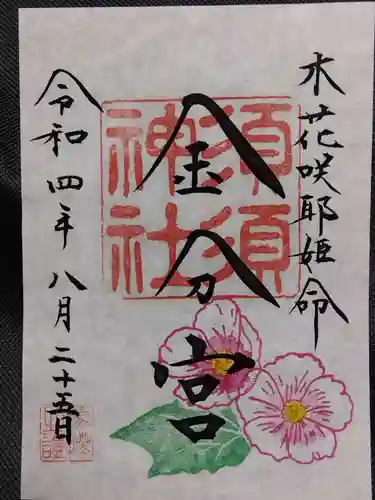 木花咲耶姫命
須須神社
金分宮
令和四年八月二十五日